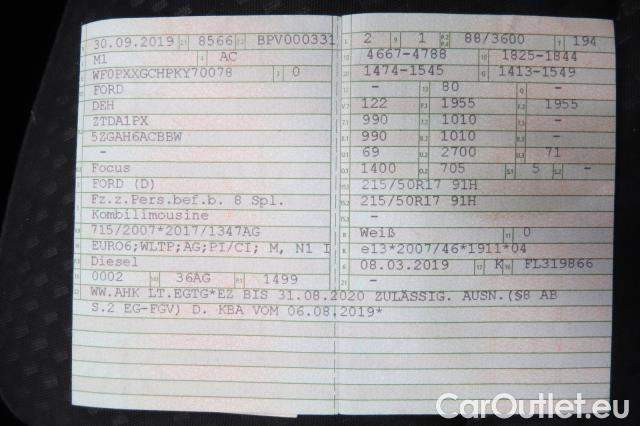 30.09.2019 8566 BPV000331
M1 AC
WF0PXXGCHPKY70078 0
FORD
DEH
ZTDA1PX
5ZGAH6ACBBW
-
Focus
FORD (D)
Fz.z.Pers.bef.b. 8 Spl.
Kombilimousine
715/2007*2017/1347AG
EURO6;WLTP;AG;PI/CI; M, N1 I
Diesel
0002 36AG 1499
WW.AHK LT.EGTG*EZ BIS 31.08.2020 ZULÄSSIG. AUSN.(§8 AB
S.2 EG-FGV) D. KBA VOM 06.08.2019*
2 1 88/3600 194
4667-4788 1825-1844
1474-1545 1413-1549
- 80 -
122 1955 1955
990 1010 -
990 1010 -
69 2700 71
1400 705 5 -
215/50R17 91H
215/50R17 91H
-
Weiß 0
e13*2007/46*1911*04
08.03.2019 K FL319866
-
CarOutlet.eu